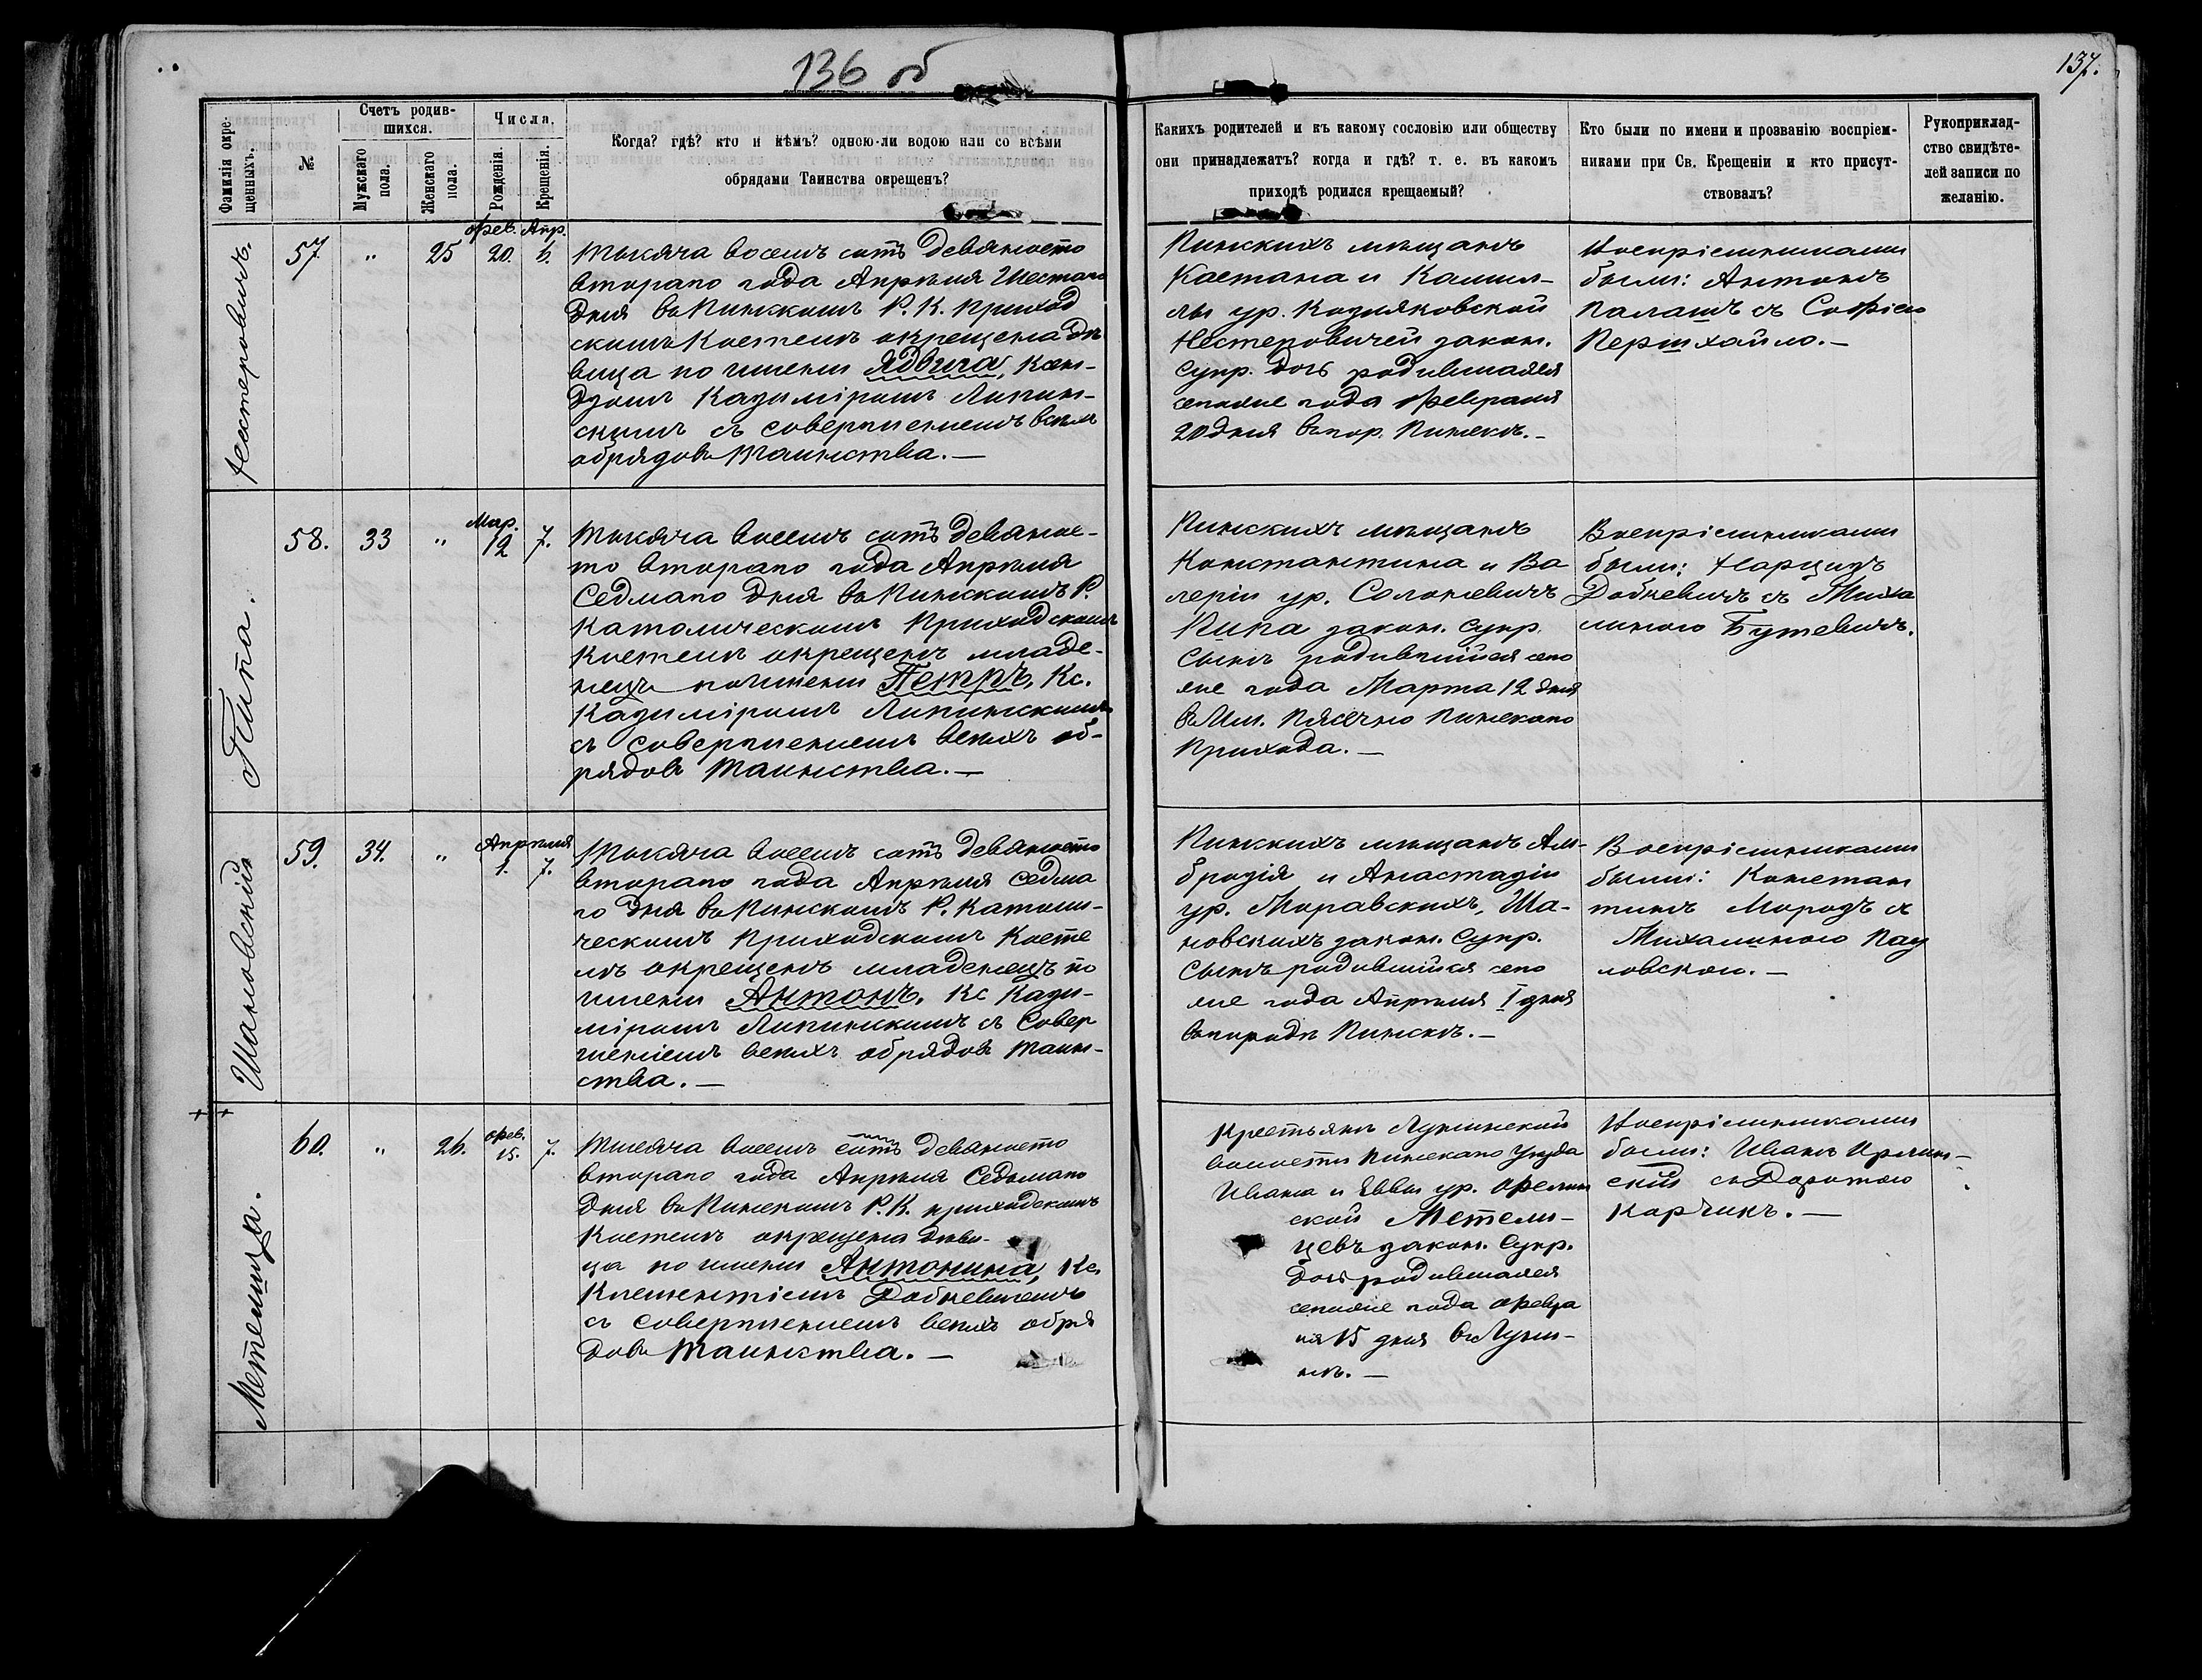 136 об
137.
Фамилія окре-
щенныхъ.
№
Счетъ родив-
шихся.
Мужскаго
пола.
Женскаго
пола.
Числа.
Рожденія.
Крещенія.
Когда? гдѣ? кто и кѣмъ? одною-ли водою или со всѣми
обрядами Таинства окрещенъ?
Какихъ родителей и къ какому сословію или обществу
они принадлежатъ? когда и гдѣ? т. е. въ какомъ
приходѣ родился крещаемый?
Кто были по имени и прозванію воспріем-
никами при Св. Крещеніи и кто присут-
ствовалъ?
Рукоприклад-
ство свидѣте-
лей записи по
желанію.
Нестеровичъ.
57
"
25
Фев.
20.
Апр.
6.
Тысяча восемъ сотъ девяносто
втораго года Апрѣля Шестаго
дня въ Пинскомъ Р. К. Приход
скомъ Костелѣ окрещена дѣ
вица по имени Ядвига, Ксен-
дзомъ Казиміромъ Липин-
скимъ съ совершениемъ всѣхъ
обрядовъ Таинства. —
Пинскихъ мѣщанъ
Каетана и Камил-
лы ур. Козляковской
Нестеровичей закон.
Супр. дочь родившаяся
сегоже года Февраля
20 дня въ гор. Пинскѣ. —
Воспріемниками
были: Антонъ
Палашъ съ Софіею
Першхайло. —
Пипа.
58.
33
"
Мар.
12
7.
Тысяча восемъ сотъ девянос-
то втораго года Апрѣля
Седмаго дня въ Пинскомъ Р.
Католическомъ Приходскомъ
Костелѣ окрещенъ младе-
нецъ по имени Петръ, Кс.
Казиміромъ Липинскимъ
съ совершениемъ всѣхъ об-
рядовъ Таинства. —
Пинскихъ мѣщанъ
Константина и Ва
леріи ур. Солоневичъ
Пипа закон. Супр.
Сынъ родившійся сего
же года Марта 12 дня
въ Им. Пясечно Пинскаго
Прихода. —
Воспріемниками
были: Нарцизъ
Добкевичъ съ Миха
линою Бутевичъ.
Шановскій
59.
34.
"
Апрѣля
1.
7.
Тысяча восемъ сотъ девяносто
втораго года Апрѣля седма
го дня въ Пинскомъ Р. Католи-
ческомъ Приходскомъ Косте
лѣ окрещенъ младенецъ по
имени Антонъ, Кс Кази-
міромъ Липинскимъ съ Совер
шеніемъ всѣхъ обрядовъ Таин-
ства. —
Пинскихъ мѣщанъ Ам-
брозія и Анастазіи
ур. Моравскихъ, Ша-
новскихъ закон. Супр.
Сынъ родившійся сего
же года Апрѣля 1 дня
въ городѣ Пинскѣ. —
Воспріемниками
были: Констан
тинъ Морозъ съ
Михалиною Пау
ловскою. —
Метелица.
60.
"
26.
Фев.
15.
7.
Тысяча восемъ сотъ девяносто
втораго года Апрѣля Седьмаго
Дня въ Пинскомъ Р. К. приходскомъ
Костелѣ окрещена дѣви-
ца по имени Антонина, Кс.
Клементіемъ Добкевичемъ
съ совершениемъ всѣхъ обря
довъ Таинства. —
Крестьянъ Лунинской
волости Пинскаго Уѣзда
Ивана и Еввы ур. Орелин
ской Метели-
цевъ закон. Супр.
дочь родившаяся
сегоже года Февра
ля 15 дня въ Луни-
нѣ. —
Воспріемниками
были: Иванъ Орлин-
скій съ Доротою
Корчикъ. —